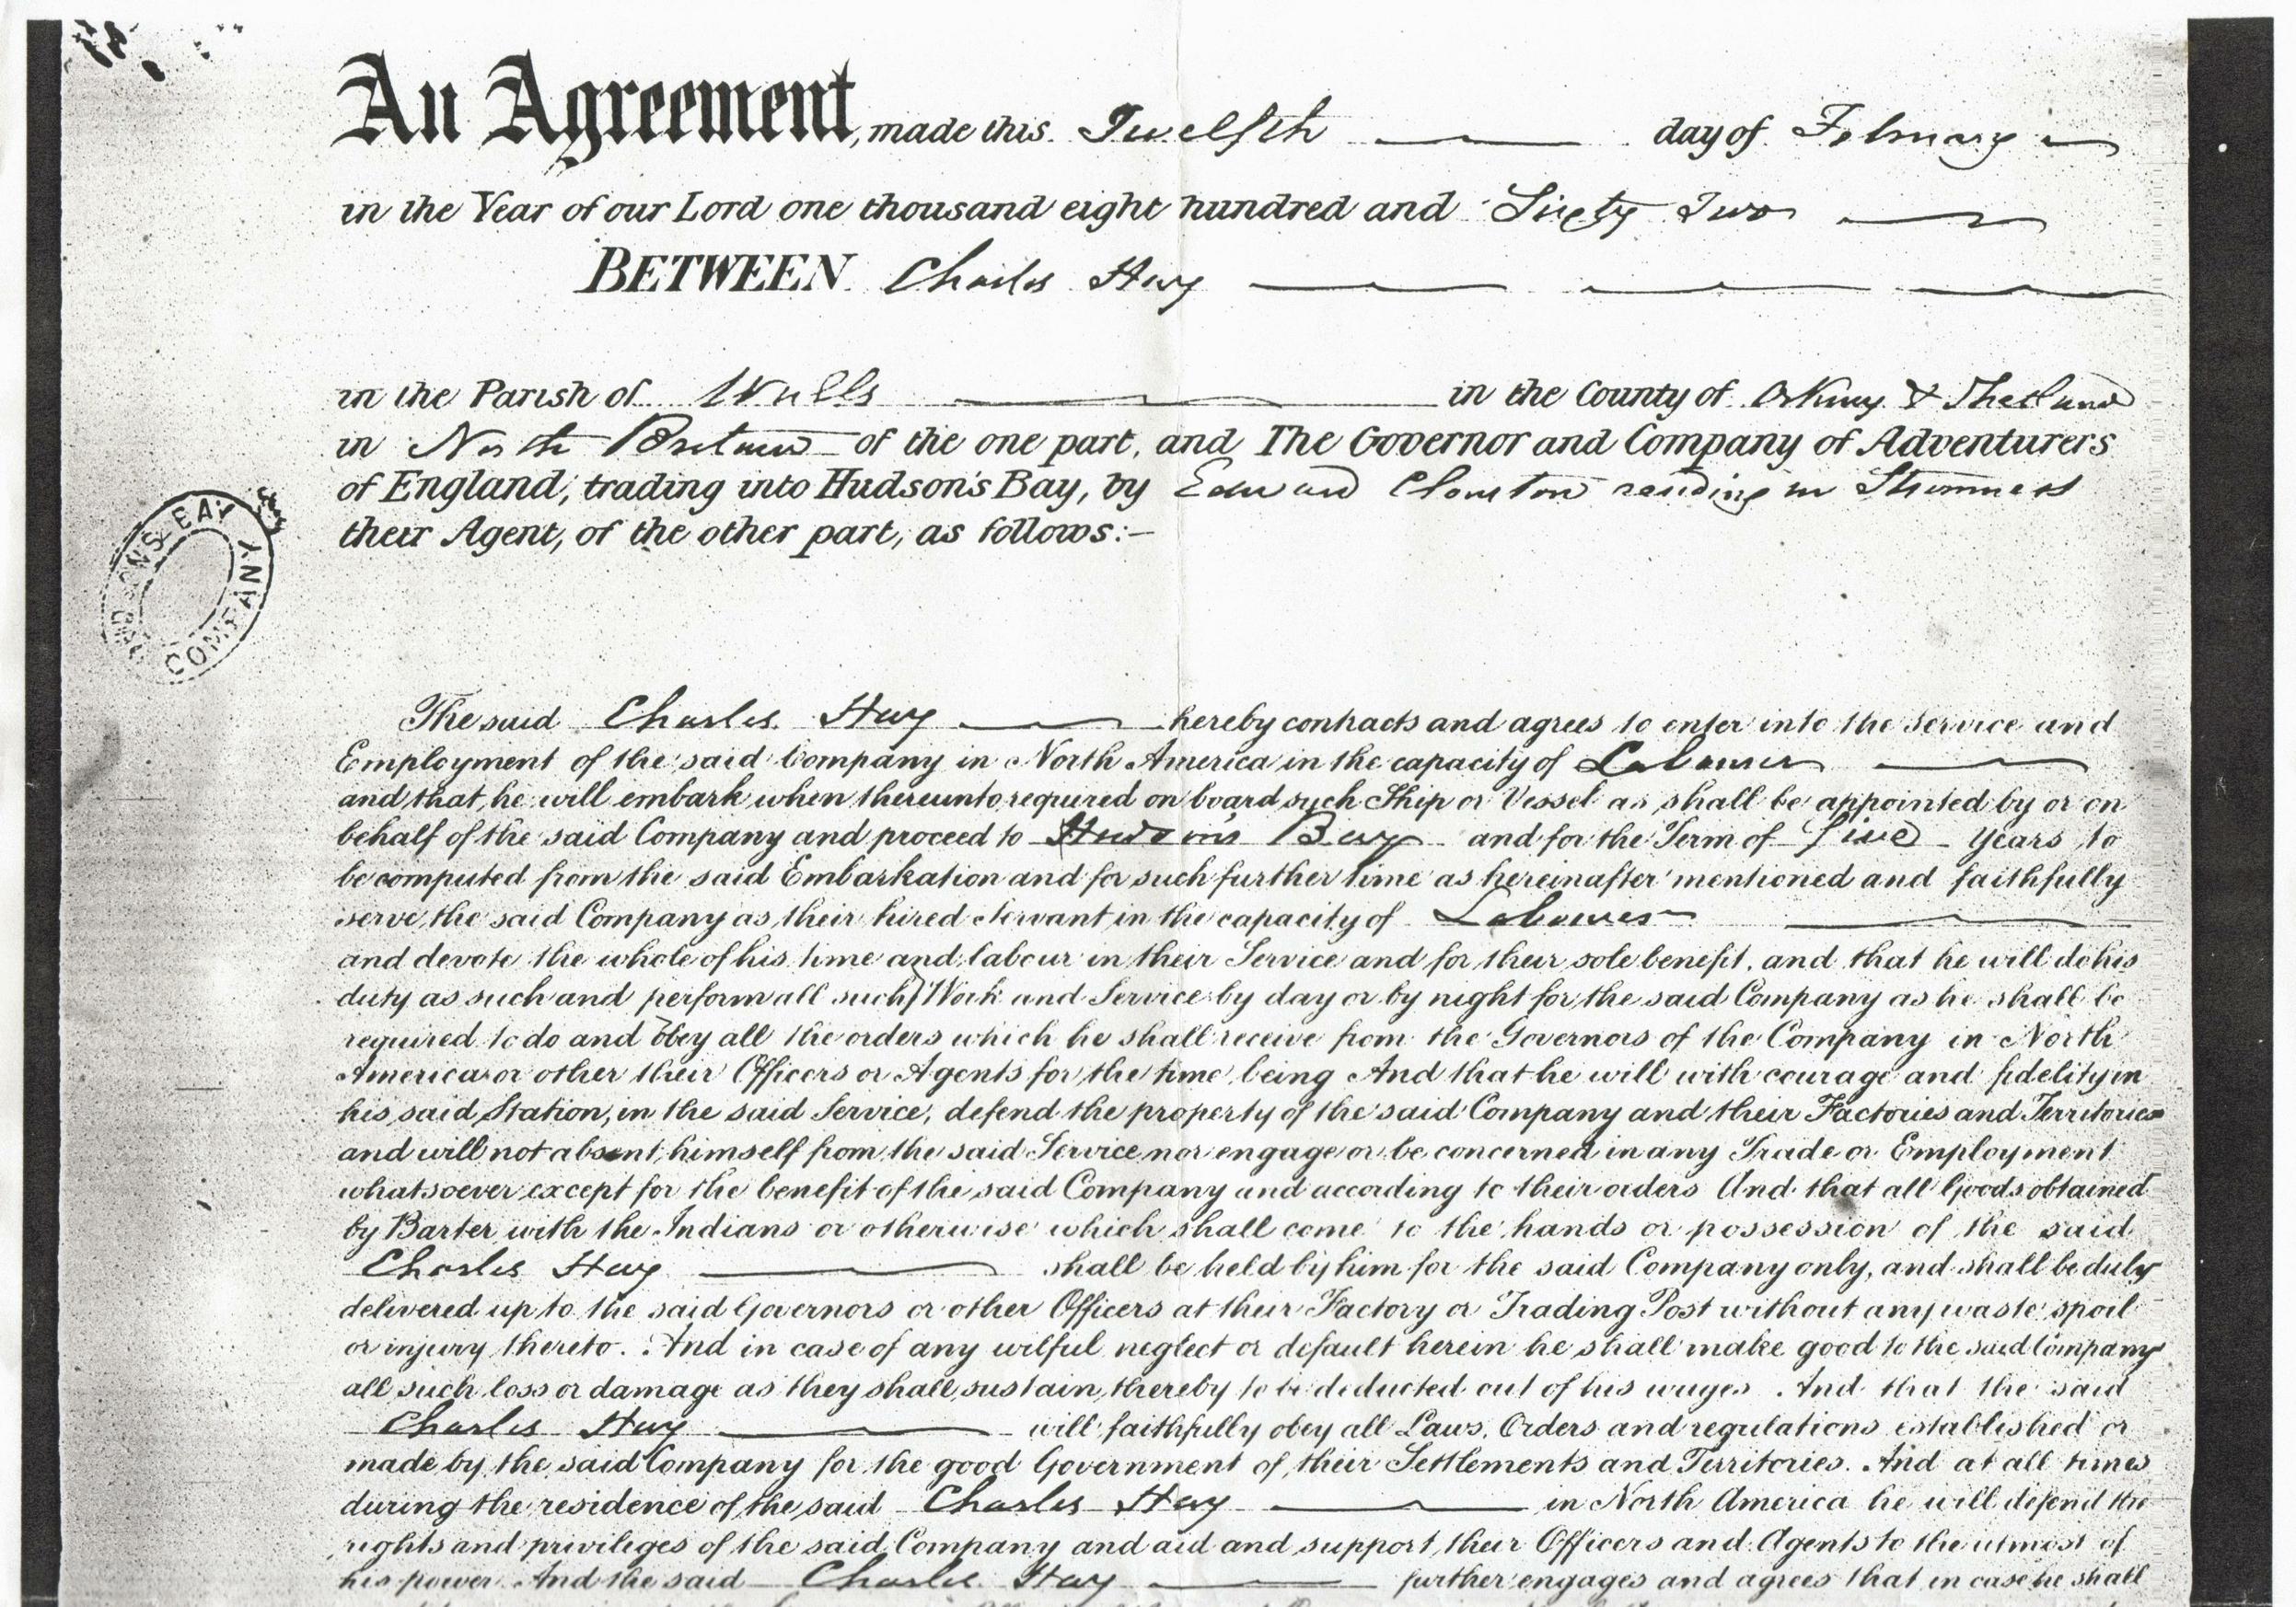 An Agreement, made this Twelfth day of February
in the Year of our Lord one thousand eight hundred and Sixty Two
BETWEEN Charles Hay
in the Parish of Walls in the County of Orkney & Shetland
in North Britain of the one part, and The Governor and Company of Adventurers
of England, trading into Hudson's Bay, by Edward Clouston residing in Stromness
their Agent, of the other part, as follows:—
HUDSONS BAY COMPANY
The said Charles Hay hereby contracts and agrees to enter into the Service and
Employment of the said Company in North America in the capacity of Labourer
and that he will embark when thereunto required on board such Ship or Vessel as shall be appointed by or on
behalf of the said Company and proceed to Hudson's Bay and for the Term of five Years to
be computed from the said Embarkation and for such further time as hereinafter mentioned and faithfully
serve the said Company as their hired Servant in the capacity of Labourer
and devote the whole of his time and labour in their Service and for their sole benefit, and that he will do his
duty as such and perform all such Work and Service by day or by night for the said Company as he shall be
required to do and obey all the orders which he shall receive from the Governors of the Company in North
America or other their Officers or Agents for the time being And that he will with courage and fidelity in
his said Station, in the said Service, defend the property of the said Company and their Factories and Territories
and will not absent himself from the said Service nor engage or be concerned in any Trade or Employment
whatsoever except for the benefit of the said Company and according to their orders And that all Goods obtained
by Barter with the Indians or otherwise which shall come to the hands or possession of the said
Charles Hay shall be held by him for the said Company only, and shall be duly
delivered up to the said Governors or other Officers at their Factory or Trading Post without any waste spoil
or injury thereto. And in case of any wilful neglect or default herein he shall make good to the said Company
all such loss or damage as they shall sustain thereby to be deducted out of his wages. And that the said
Charles Hay will faithfully obey all Laws, Orders and regulations established or
made by the said Company for the good Government of their Settlements and Territories. And at all times
during the residence of the said Charles Hay in North America he will defend the
rights and privileges of the said Company and aid and support their Officers and Agents to the utmost of
his power. And the said Charles Hay further engages and agrees that in case he shall